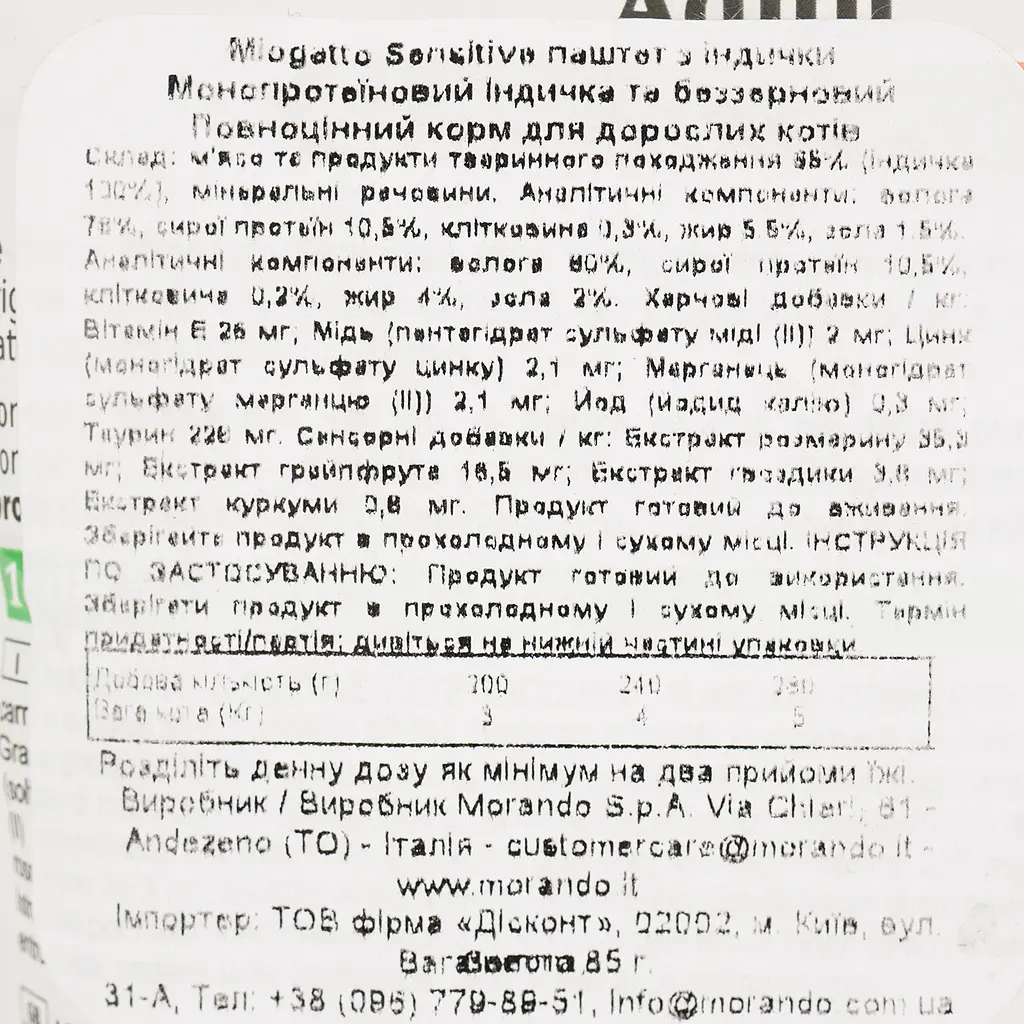 Adult
Miogatto Sensitive паштет з індички
Монопротеїновий індичка та беззерновий
Повноцінний корм для дорослих котів
Склад: м'ясо та продукти тваринного походження (індичка
100%), мінеральні речовини. Аналітичні компоненти: волога
сирої протеїн 10,5%, клітковина 0,3%, жир 5.5%, зола 1.5%.
Аналітичні компоненти: волога 80%, сирої протеїн 10,5%,
клітковина 0,2%, жир 4%, зола 2%. Харчові добавки / кг:
Вітамін Е 25 мг; Мідь (пентагідрат сульфату міді (II)) 2 мг; Цинк
(моногідрат сульфату цинку) 2,1 мг; Марганець (моногідрат
сульфату марганцю (II)) 2,1 мг; Йод (йодид калію) 0,3 мг;
Таурин мг. Сенсорні добавки / кг: Екстракт розмарину
мг; Екстракт грейпфрута 16,5 мг; Екстракт гвоздики мг;
Екстракт куркуми мг. Продукт готовий до вживання.
Зберігайте продукт в прохолодному і сухому місці. ІНСТРУКЦІЯ
ПО ЗАСТОСУВАННЮ: Продукт готовий до використання.
Зберігати продукт в прохолодному і сухому місці. Термін
придатності/партія: дивіться на нижній частині упаковки
Добова кількість (г) 200 240 280
Вага кота (Кг) 3 4 5
Розділіть денну дозу як мінімум на два прийоми їжі.
Виробник / Виробник Morando S.p.A. Via Chieri, 61 -
Andezeno (TO) - Італія - customercare@morando.it -
www.morando.it
Імпортер: ТОВ фірма «Дісконт», 02002, м. Київ, вул.
85 г.
31-А, Тел: +38 (096) 779-89-51, Info@morando.com.ua